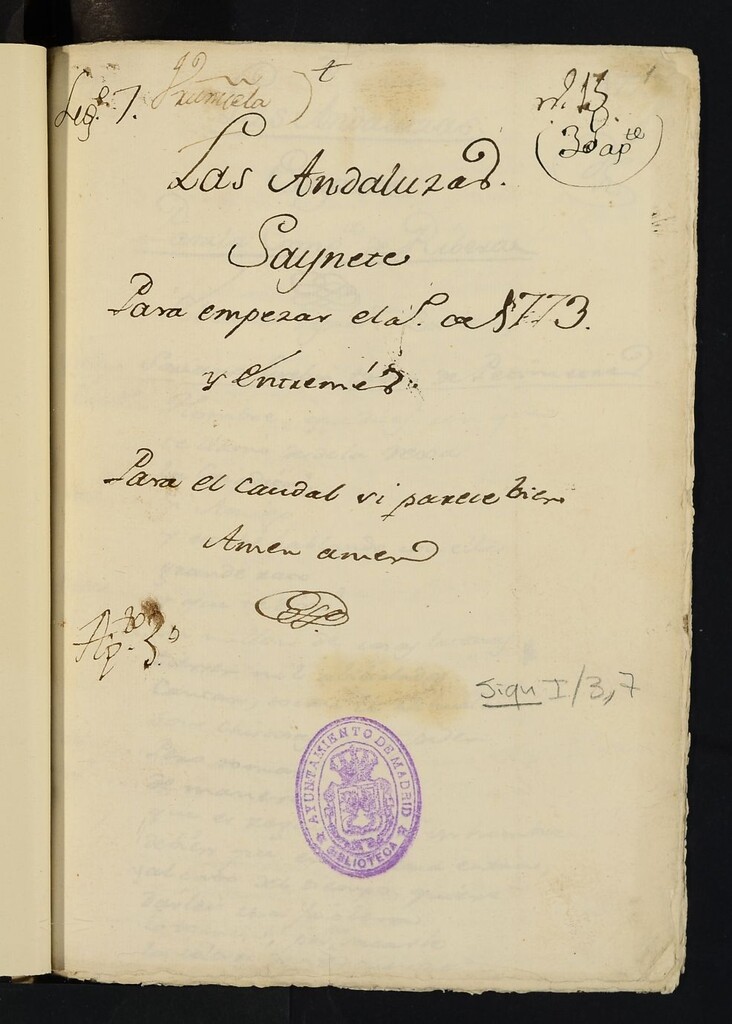 Leg.º 7.
t
n.º 15
1
(3o ap.te)
Las Andaluzas.
Saynete
Para empezar el a.º de 1773.
y entremés.
Para el caudal si parece bien
Amen amen
Ap.to 3.º
Sign I/3,7
AYUNTAMIENTO DE MADRID
BIBLIOTECA